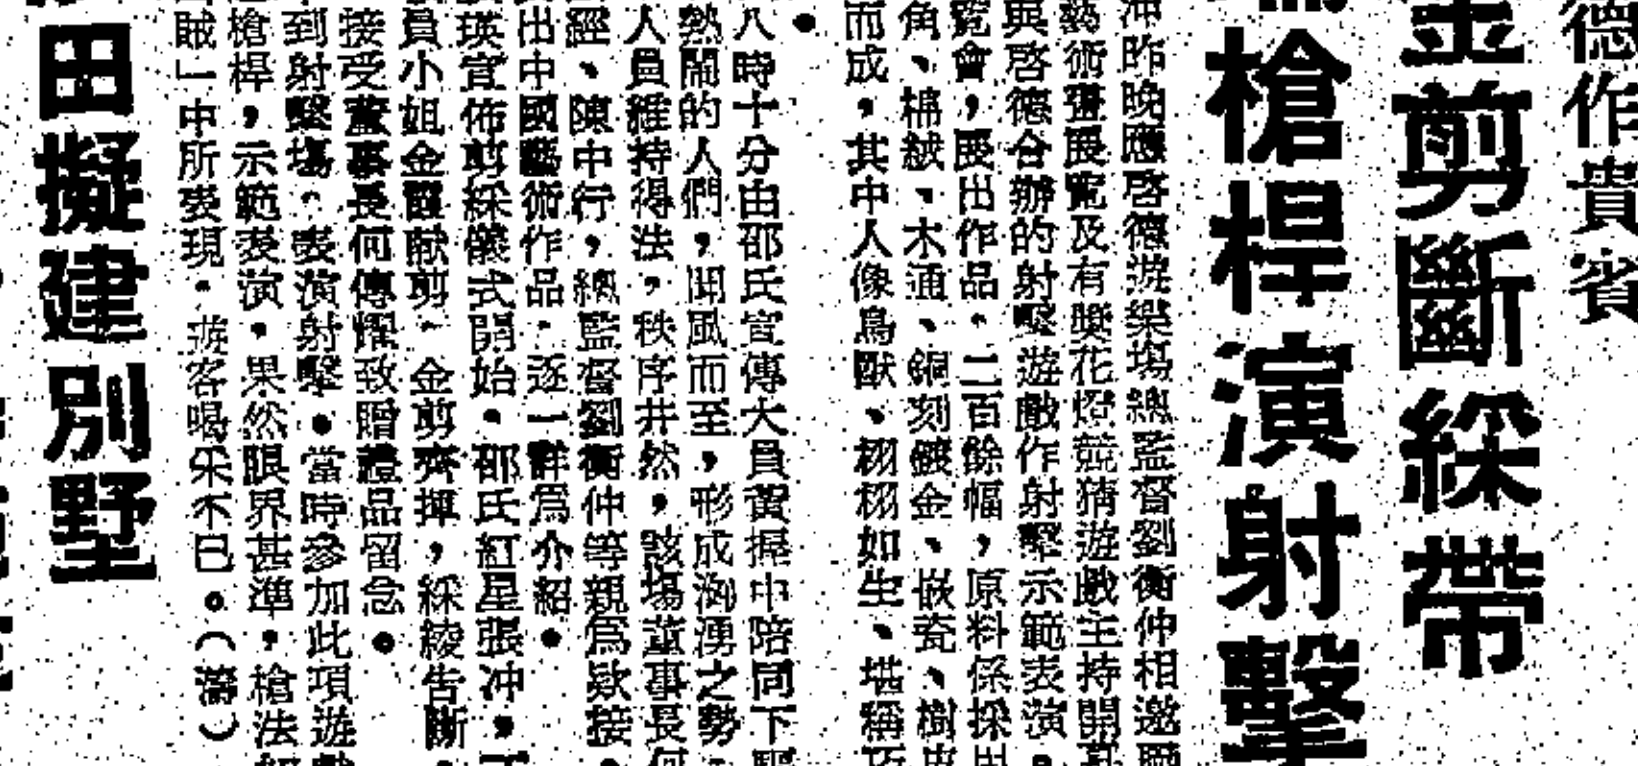 德作貴賓
金剪斷綵帶
槍桿演射擊
沖昨晚應啓德遊樂場總監督劉衡仲相邀
藝術畫展覽及有獎花燈競猜遊戲主持開幕
與啓德合辦的射擊遊戲作射擊示範表演。
覽會，展出作品。二百餘幅，原料係採用
角、棉絨、木通、銅刻鍍金、嵌瓷、樹皮
而成，其中人像鳥獸、栩栩如生、堪稱巧
八時十分由邵氏宣傳大員黃握中陪同下
熱鬧的人們，聞風而至，形成洶湧之勢，
人員維持得法，秩序井然，該場董事長何
經、陳中行，總監督劉衡仲等親爲欵接。
出中國藝術作品。逐一詳爲介紹。
瑛宣佈剪綵儀式開始。邵氏紅星張冲，
員小姐金霞献剪。金剪齊揮，綵綾告斷
接受董事長何傳耀致贈禮品留念。
到射擊場。表演射擊。當時參加此項遊戲
槍桿，示範表演，果然眼界甚準，槍法如
賊」中所表現。遊客喝采不已。（濤）
田擬建別墅